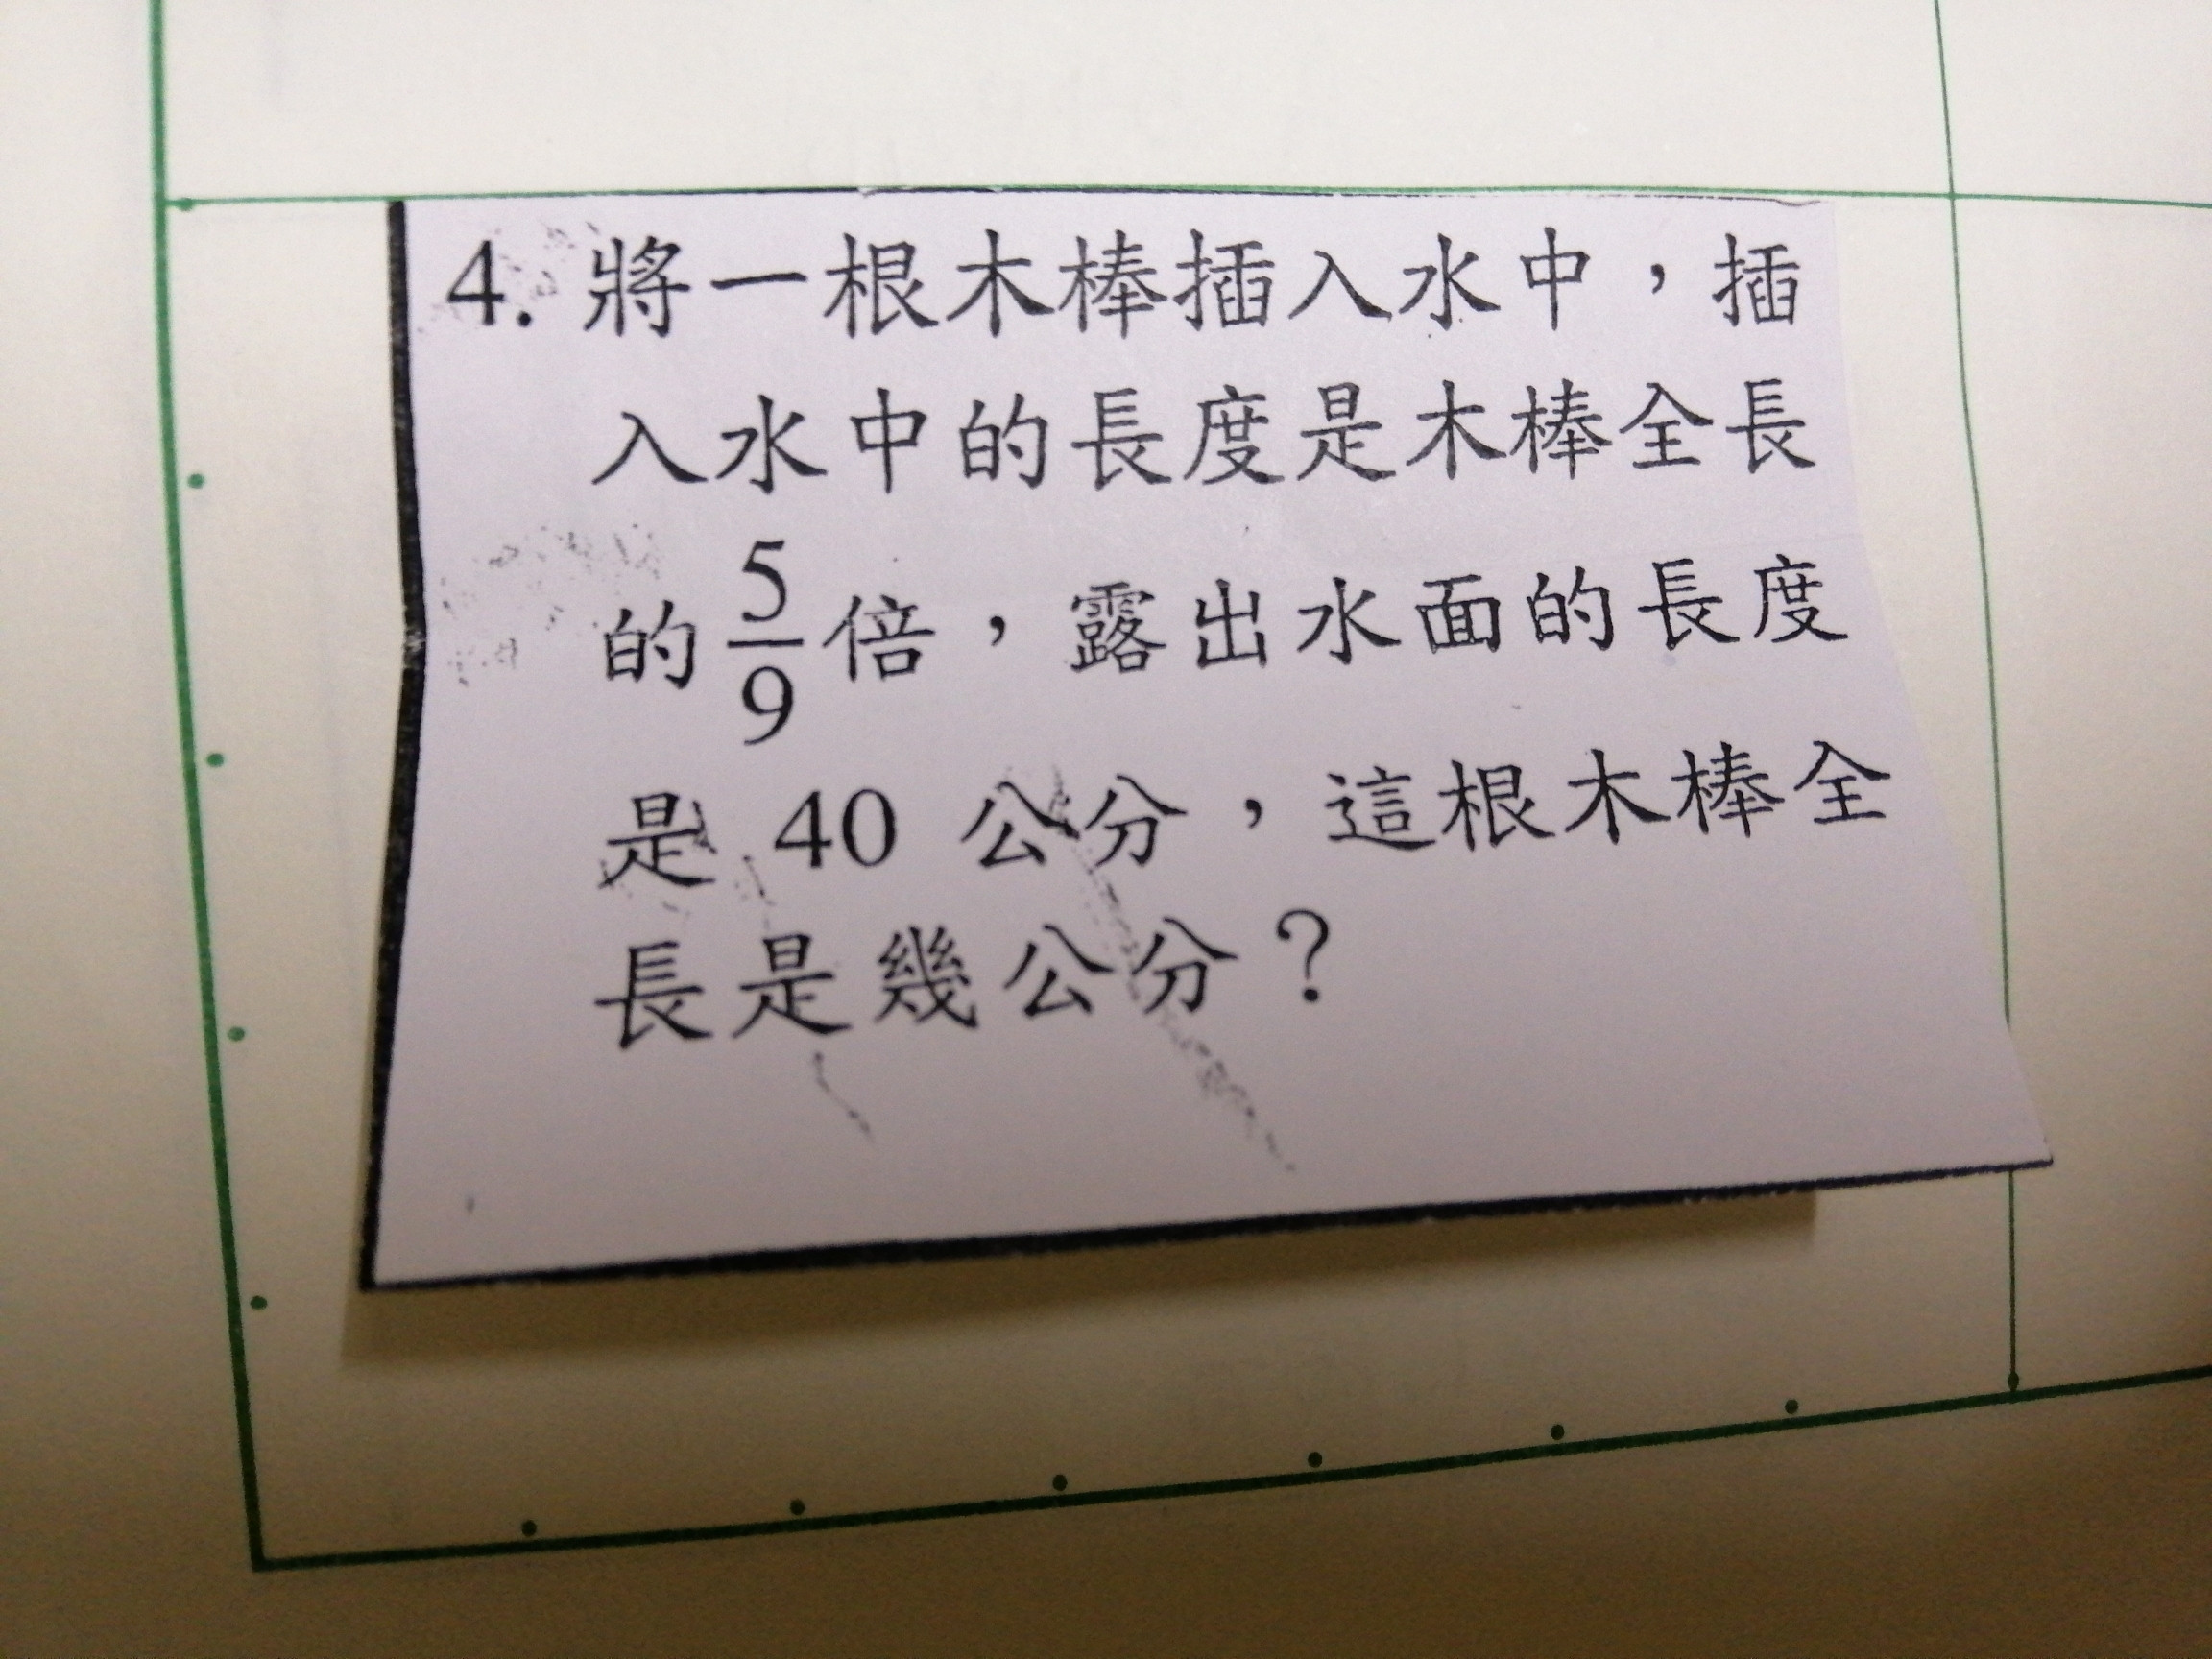 4. 將一根木棒插入水中，插
入水中的長度是木棒全長
的 5/9 倍，露出水面的長度
是 40 公分，這根木棒全
長是幾公分？